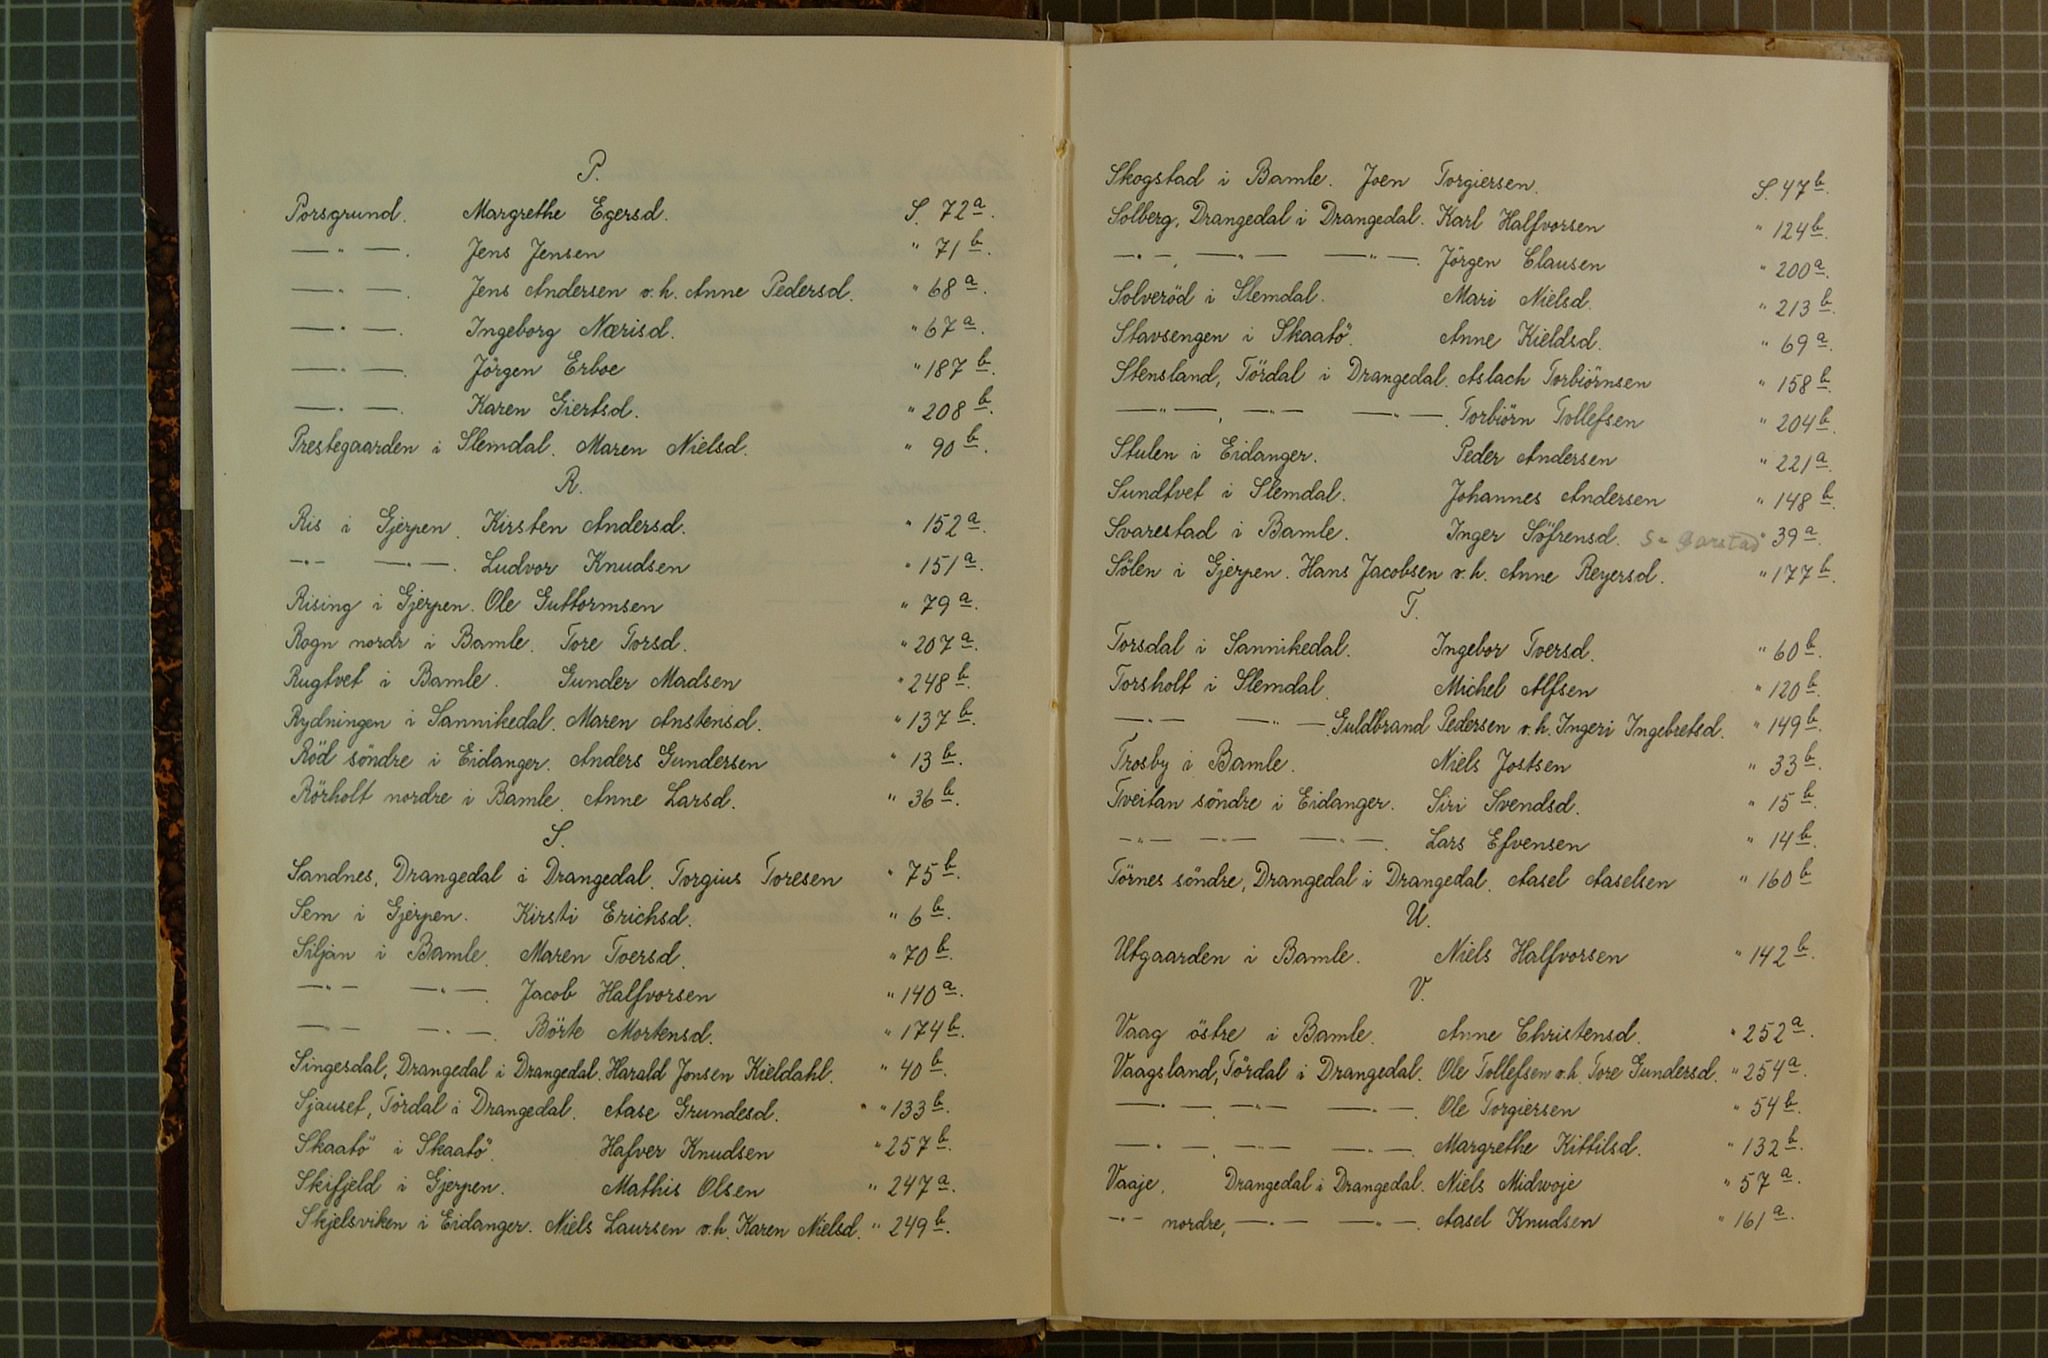 P.
Porsgrund. Margrethe Egersd. S. 72a.
—"—. Jens Jensen " 71b.
—"—. Jens Andersen v. h. Anne Pedersd. " 68a.
—"—. Ingeborg Nærisd. " 67a.
—"—. Jörgen Erboe " 187b.
—"—. Karen Giertsd. " 208b.
Prestegaarden i Slemdal. Maren Nielsd. " 90b.
R.
Ris i Gjerpen. Kirsten Andersd. " 152a.
—"— —"—. Ludvor Knudsen " 151a.
Rising i Gjerpen. Ole Guttormsen " 79a.
Rogn nordr i Bamle. Tore Torsd. " 207a.
Rugtvet i Bamle. Gunder Madsen " 248b.
Rydningen i Sannikedal. Maren Anstensd. " 137b.
Röd söndre i Eidanger. Anders Gundersen " 13b.
Rörholt nordre i Bamle. Anne Larsd. " 36b.
S.
Sandnes, Drangedal i Drangedal. Torgius Toresen " 75b.
Sem i Gjerpen. Kirsti Erichsd. " 6b.
Siljan i Bamle. Maren Tversd. " 70b.
—"— —"—. Jacob Halfvorsen " 140a.
—"— —"—. Börte Mortensd. " 174b.
Singesdal, Drangedal i Drangedal. Harald Jonsen Kieldahl. " 40b.
Sjauset, Tördal i Drangedal. Aase Grundesd. " 133b.
Skaatö i Skaatö. Hafver Knudsen " 257b.
Skifjeld i Gjerpen. Mathis Olsen " 247a.
Skjelsviken i Eidanger. Niels Laursen v. h. Karen Nielsd. " 249b.
Skogstad i Bamle. Joen Torgiersen. S. 47b.
Solberg, Drangedal i Drangedal. Karl Halfvorsen " 124b.
—"—, —"— —"—. Jörgen Clausen " 200a.
Solveröd i Slemdal. Mari Nielsd. " 213b.
Stavsengen i Skaatö. Anne Kieldsd. " 69a.
Stensland, Tördal i Drangedal. Aslach Torbiörnsen " 158b.
—"—, —"— —"—. Torbiörn Tollefsen " 204b.
Stulen i Eidanger. Peder Andersen " 221a.
Sundtvet i Slemdal. Johannes Andersen " 148b.
Svarestad i Bamle. Inger Söfrensd. " 39a.
Sölen i Gjerpen. Hans Jacobsen v. h. Anne Reyersd. " 177b.
T.
Torsdal i Sannikedal. Ingebor Tversd. " 60b.
Torsholt i Slemdal. Michel Alfsen " 120b.
—"— —"—. Guldbrand Pedersen v. h. Ingeri Ingebretsd. " 149b.
Trosby i Bamle. Niels Jostsen " 33b.
Tveitan söndre i Eidanger. Siri Svendsd. " 15b.
—"— —"— —"—. Lars Efvensen " 14b.
Törnes söndre, Drangedal i Drangedal. Aasel Aaselsen " 160b
U.
Utgaarden i Bamle. Niels Halfvorsen " 142b.
V.
Vaag östre i Bamle. Anne Christensd. " 252a.
Vaagsland, Tördal i Drangedal. Ole Tollefsen v. h. Tore Gundersd. " 254a.
—"—, —"— —"—. Ole Torgiersen " 54b.
—"—, —"— —"—. Margrethe Kittilsd. " 132b.
Vaaje, Drangedal i Drangedal. Niels Midwoje " 57a.
—"— nordre, —"— —"—. Aasel Knudsen " 161a.